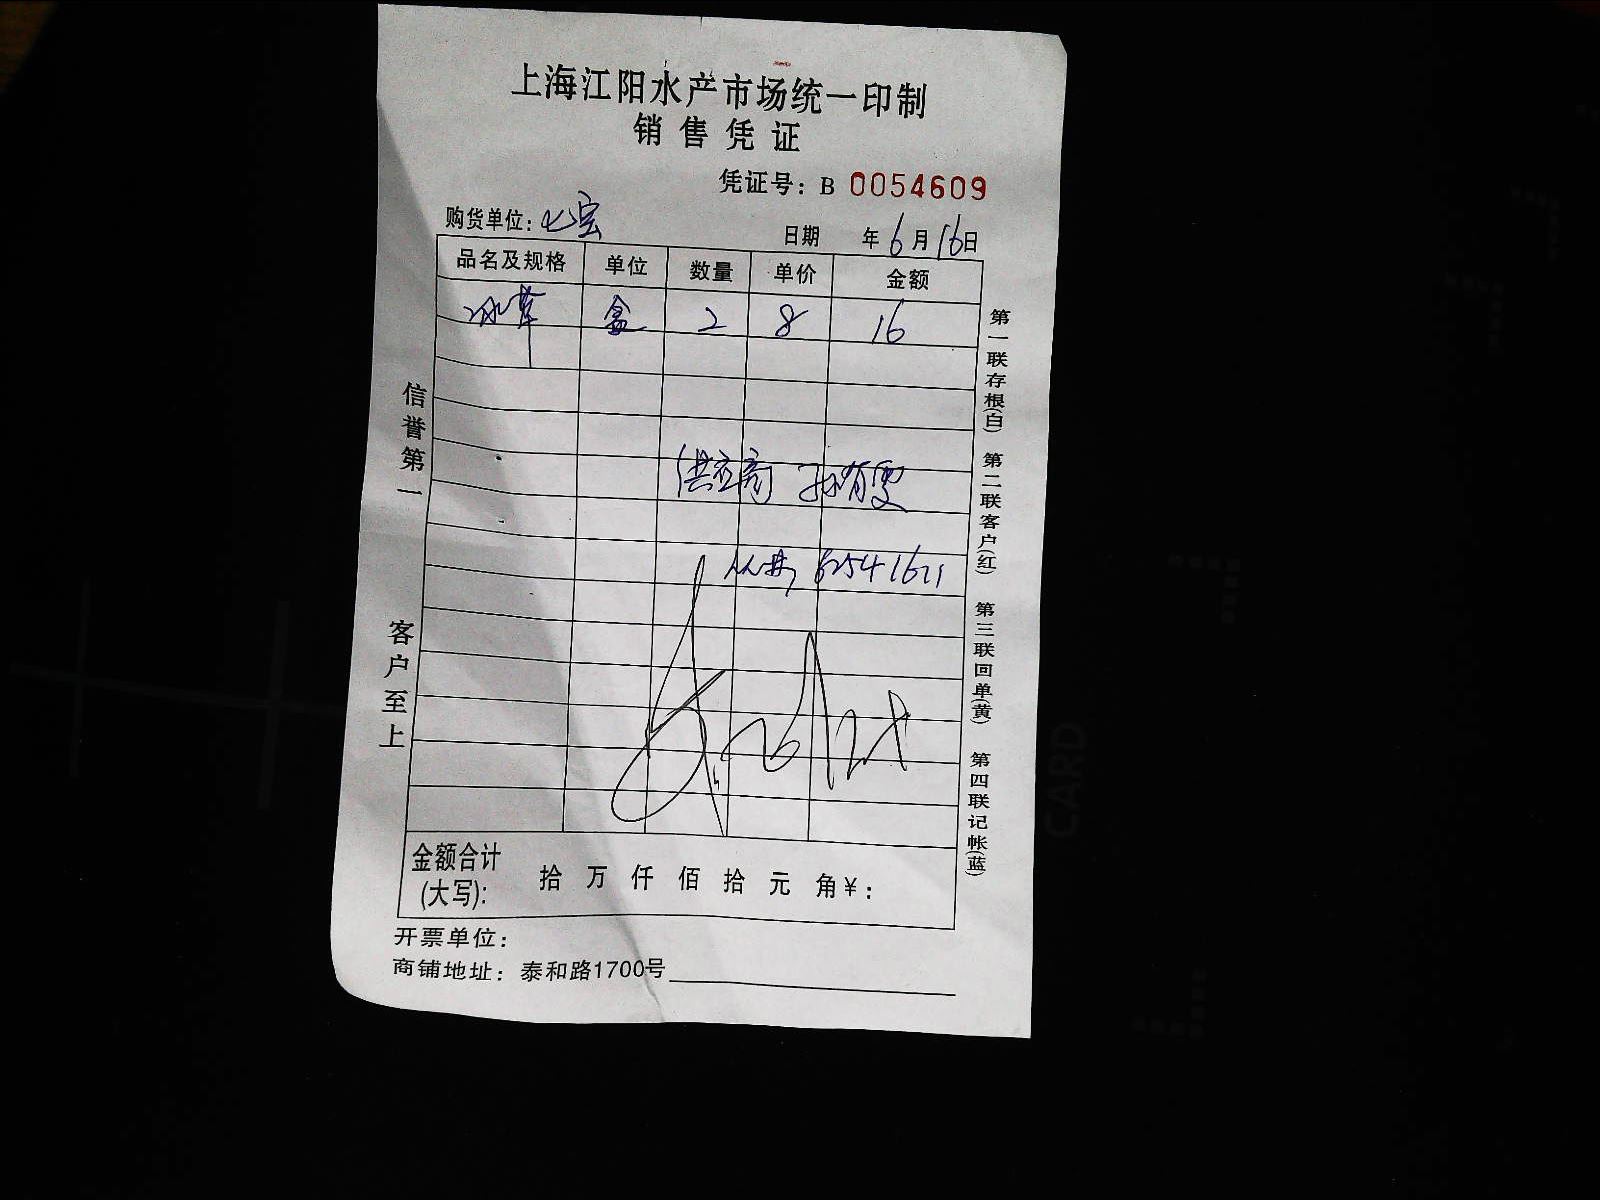 上海江阳水产市场统一印制
销售凭证
凭证号：B 0054609
购货单位：七宝
日期 年6月16日
品名及规格 单位 数量 单价 金额
冰草 盒 2 8 16
供应商 孙有雯
信誉第一
客户至上
第一联存根(白) 第二联客户(红) 第三联回单(黄) 第四联记帐(蓝)
金额合计
(大写)： 拾 万 仟 佰 拾 元 角￥：
开票单位：
商铺地址：泰和路1700号
CARD